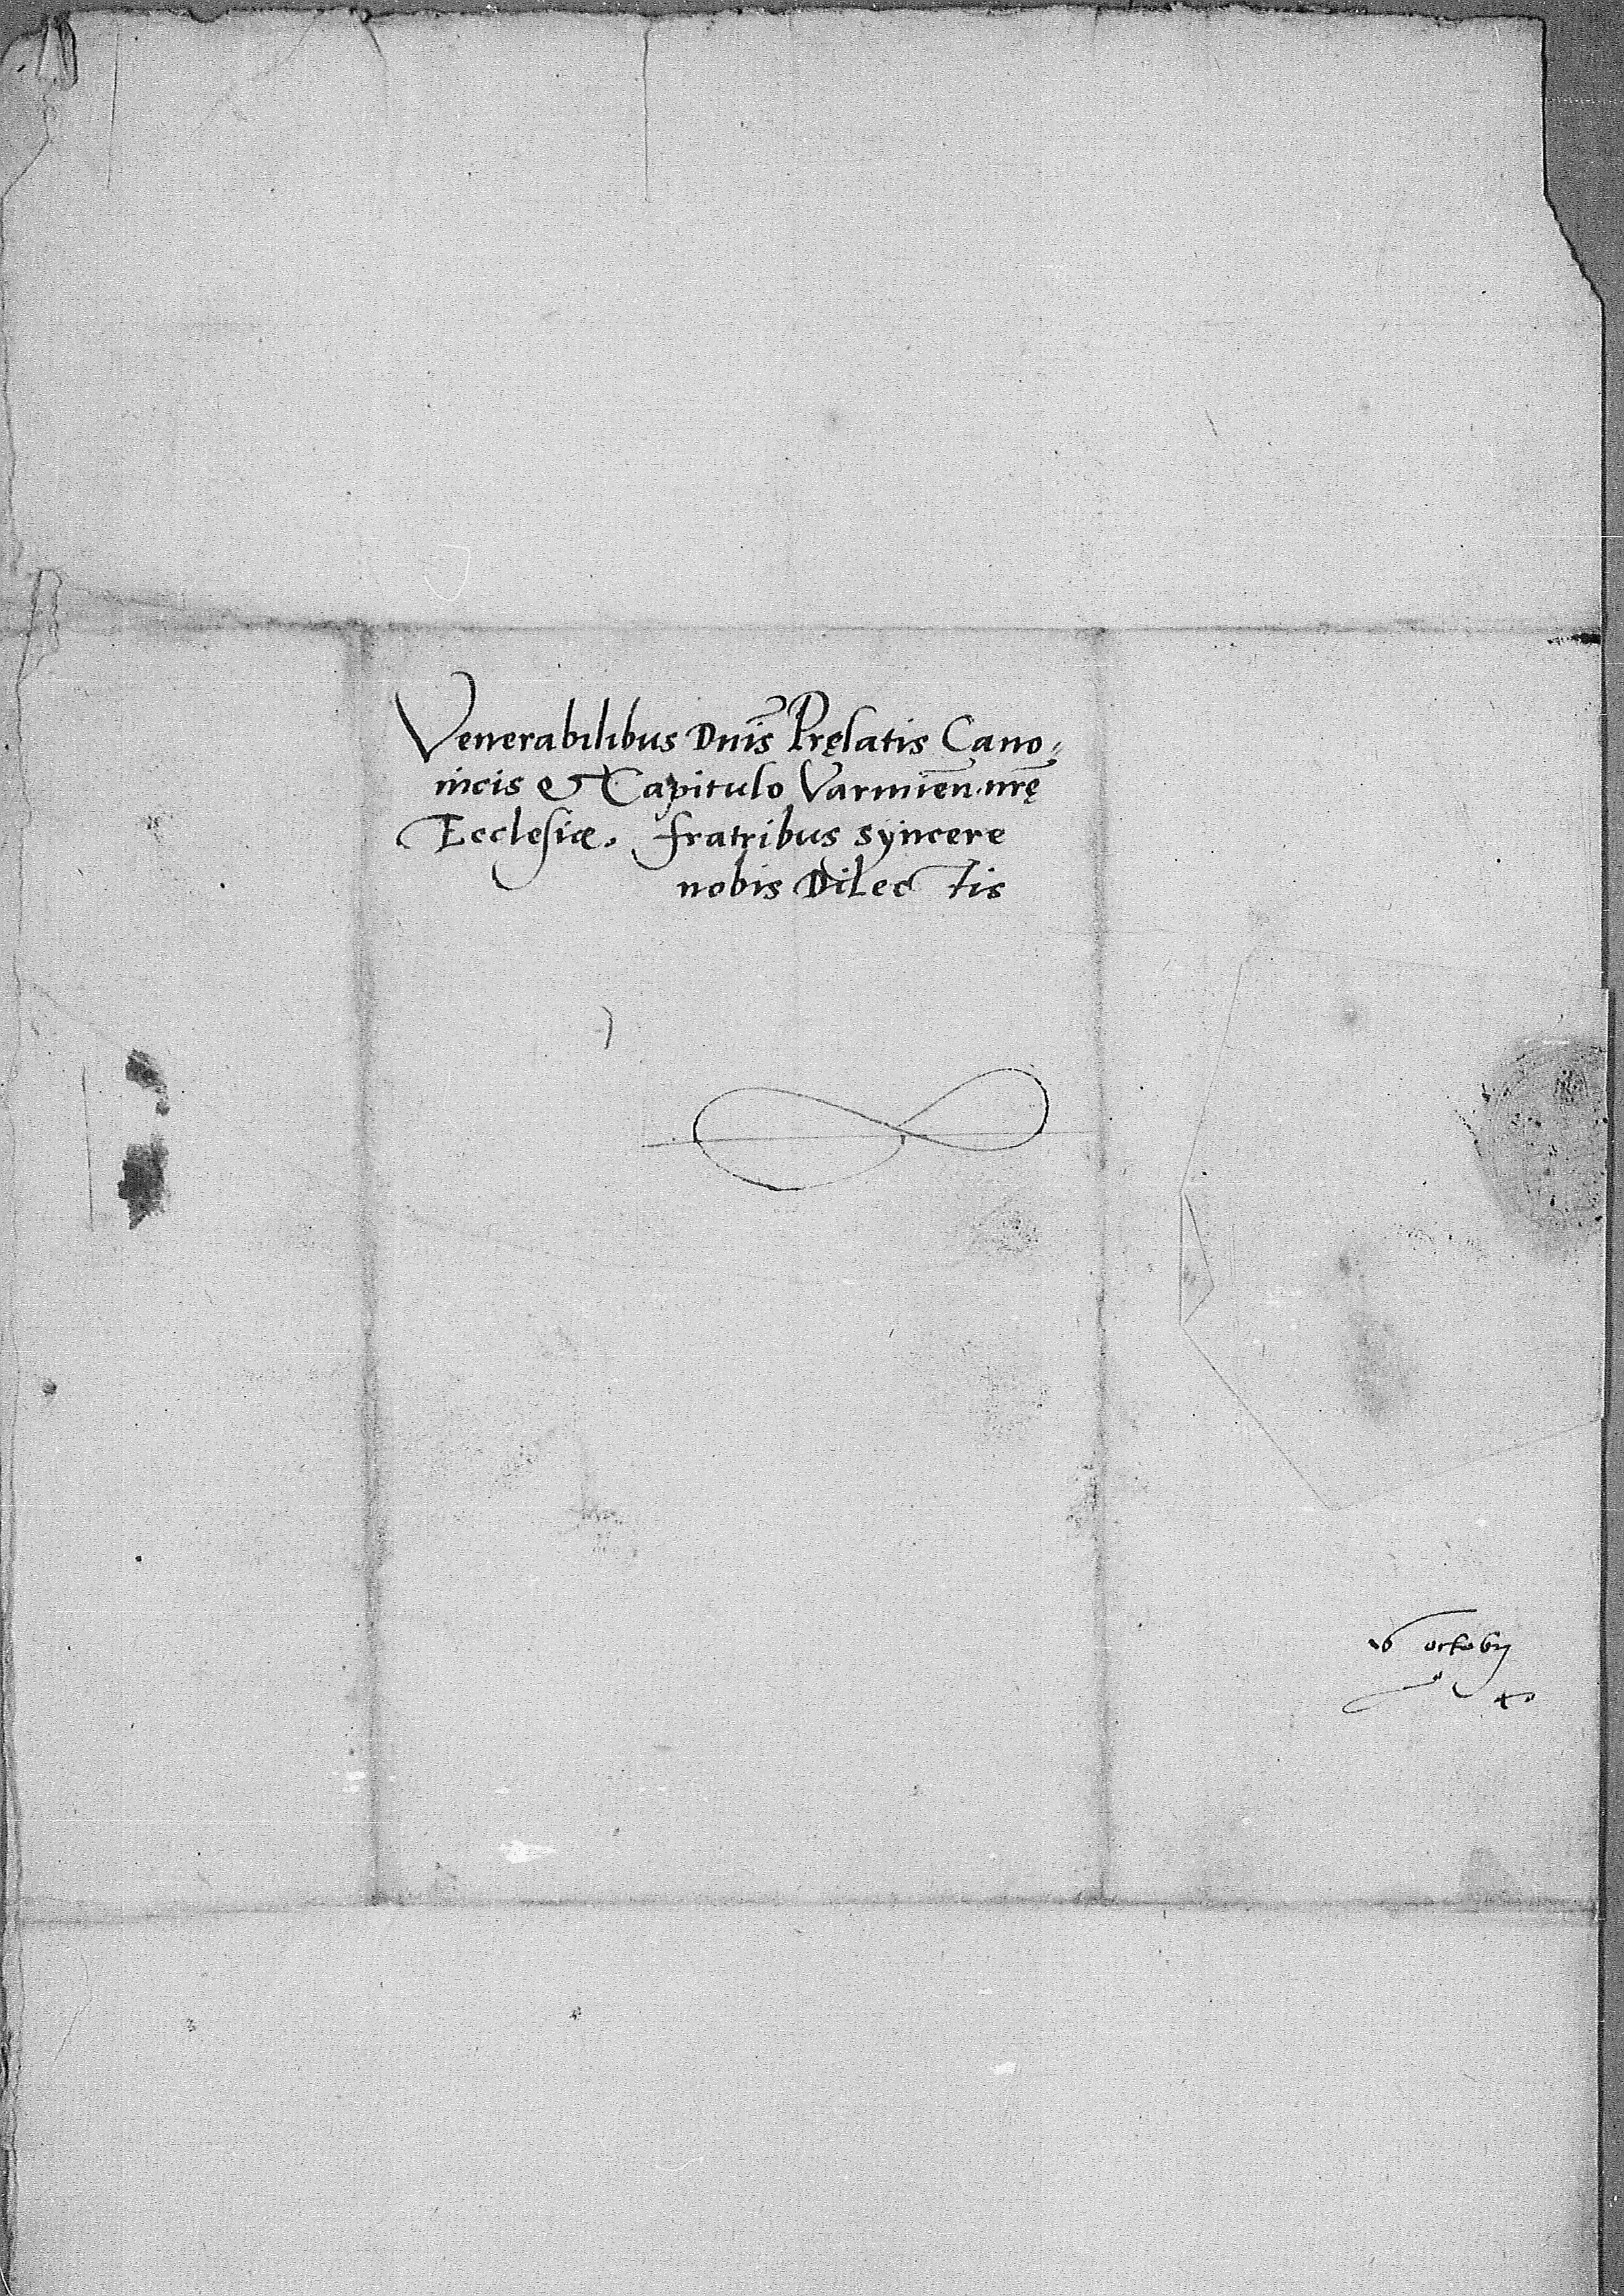 Venerabilibus Dnis̃ Pręlatis Cano⸗
nicis & Capitulo Varmien̄. nr̄ę
Ecclesiæ. fratribus syncere
nobis Dilectis
octobr